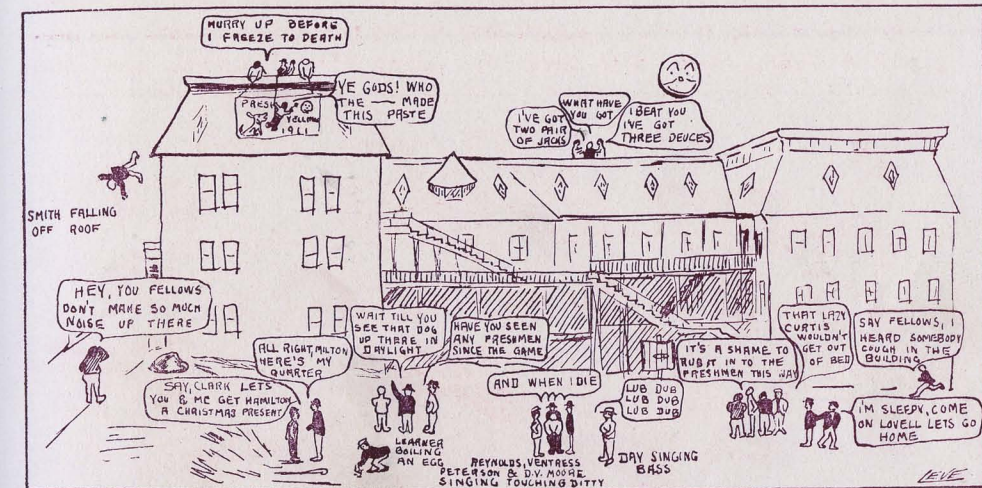 HURRY UP BEFORE
I FREEZE TO DEATH
YE GODS! WHO
THE — MADE
THIS PASTE
PRESH
YELLOW
1911
I'VE GOT
TWO PAIR
OF JACKS
WHAT HAVE
YOU GOT
I BEAT YOU
I'VE GOT
THREE DEUCES
SMITH FALLING
OFF ROOF
HEY, YOU FELLOWS
DON'T MAKE SO MUCH
NOISE UP THERE
SAY, CLARK LETS
YOU & ME GET HAMILTON
A CHRISTMAS PRESENT
ALL RIGHT, MILTON
HERE'S MY
QUARTER
WAIT TILL YOU
SEE THAT DOG
UP THERE IN
DAYLIGHT
HAVE YOU SEEN
ANY FRESHMEN
SINCE THE GAME
LEARNER
BOILING
AN EGG
AND WHEN I DIE
REYNOLDS, VENTRESS
PETERSON & D.V. MOORE
SINGING TOUCHING DITTY
LUB DUB
LUB DUB
LUB DUB
DAY SINGING
BASS
IT'S A SHAME TO
RUB IT IN TO THE
FRESHMEN THIS WAY
THAT LAZY
CURTIS
WOULDN'T
GET OUT
OF BED
SAY FELLOWS, I
HEARD SOMEBODY
COUGH IN THE
BUILDING
I'M SLEEPY, COME
ON LOVELL LETS GO
HOME
LEVE